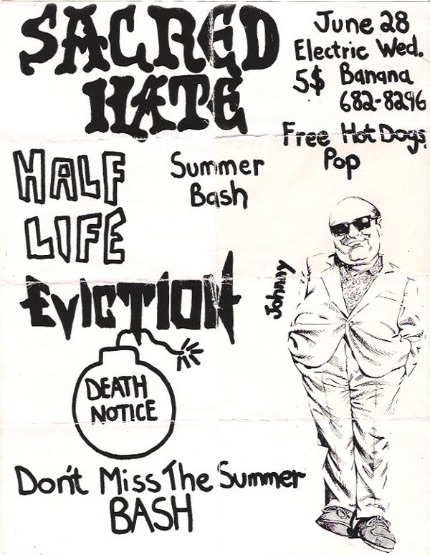 SACRED
HATE
June 28
Electric Wed.
5$ Banana
682-8296
Free Hot Dogs
Pop
HALF
LIFE
Summer
Bash
EVICTION
Johnny
DEATH
NOTICE
Don't Miss The Summer
BASH